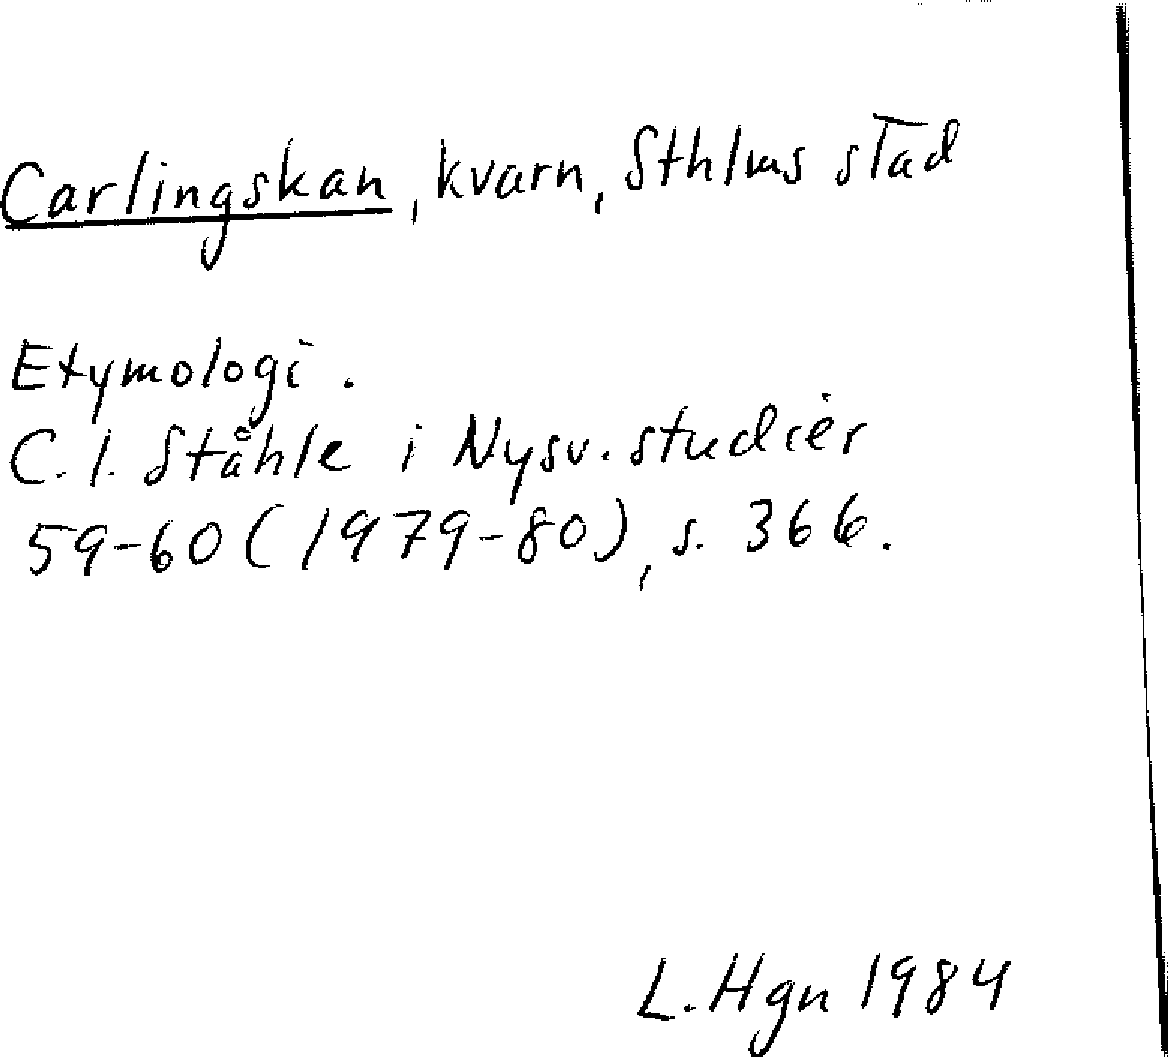 Carlingskan, kvarn, Sthlms stad
Etymologi.
C. I. Ståhle i Nysv. studier
59-60 (1979-80), s. 366.
L. Hgn 1984